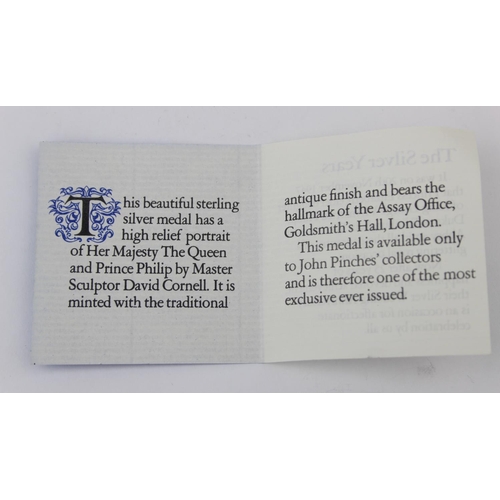 This beautiful sterling
silver medal has a
high relief portrait
of Her Majesty The Queen
and Prince Philip by Master
Sculptor David Cornell. It is
minted with the traditional
antique finish and bears the
hallmark of the Assay Office,
Goldsmith's Hall, London.
This medal is available only
to John Pinches' collectors
and is therefore one of the most
exclusive ever issued.
The Silver Years